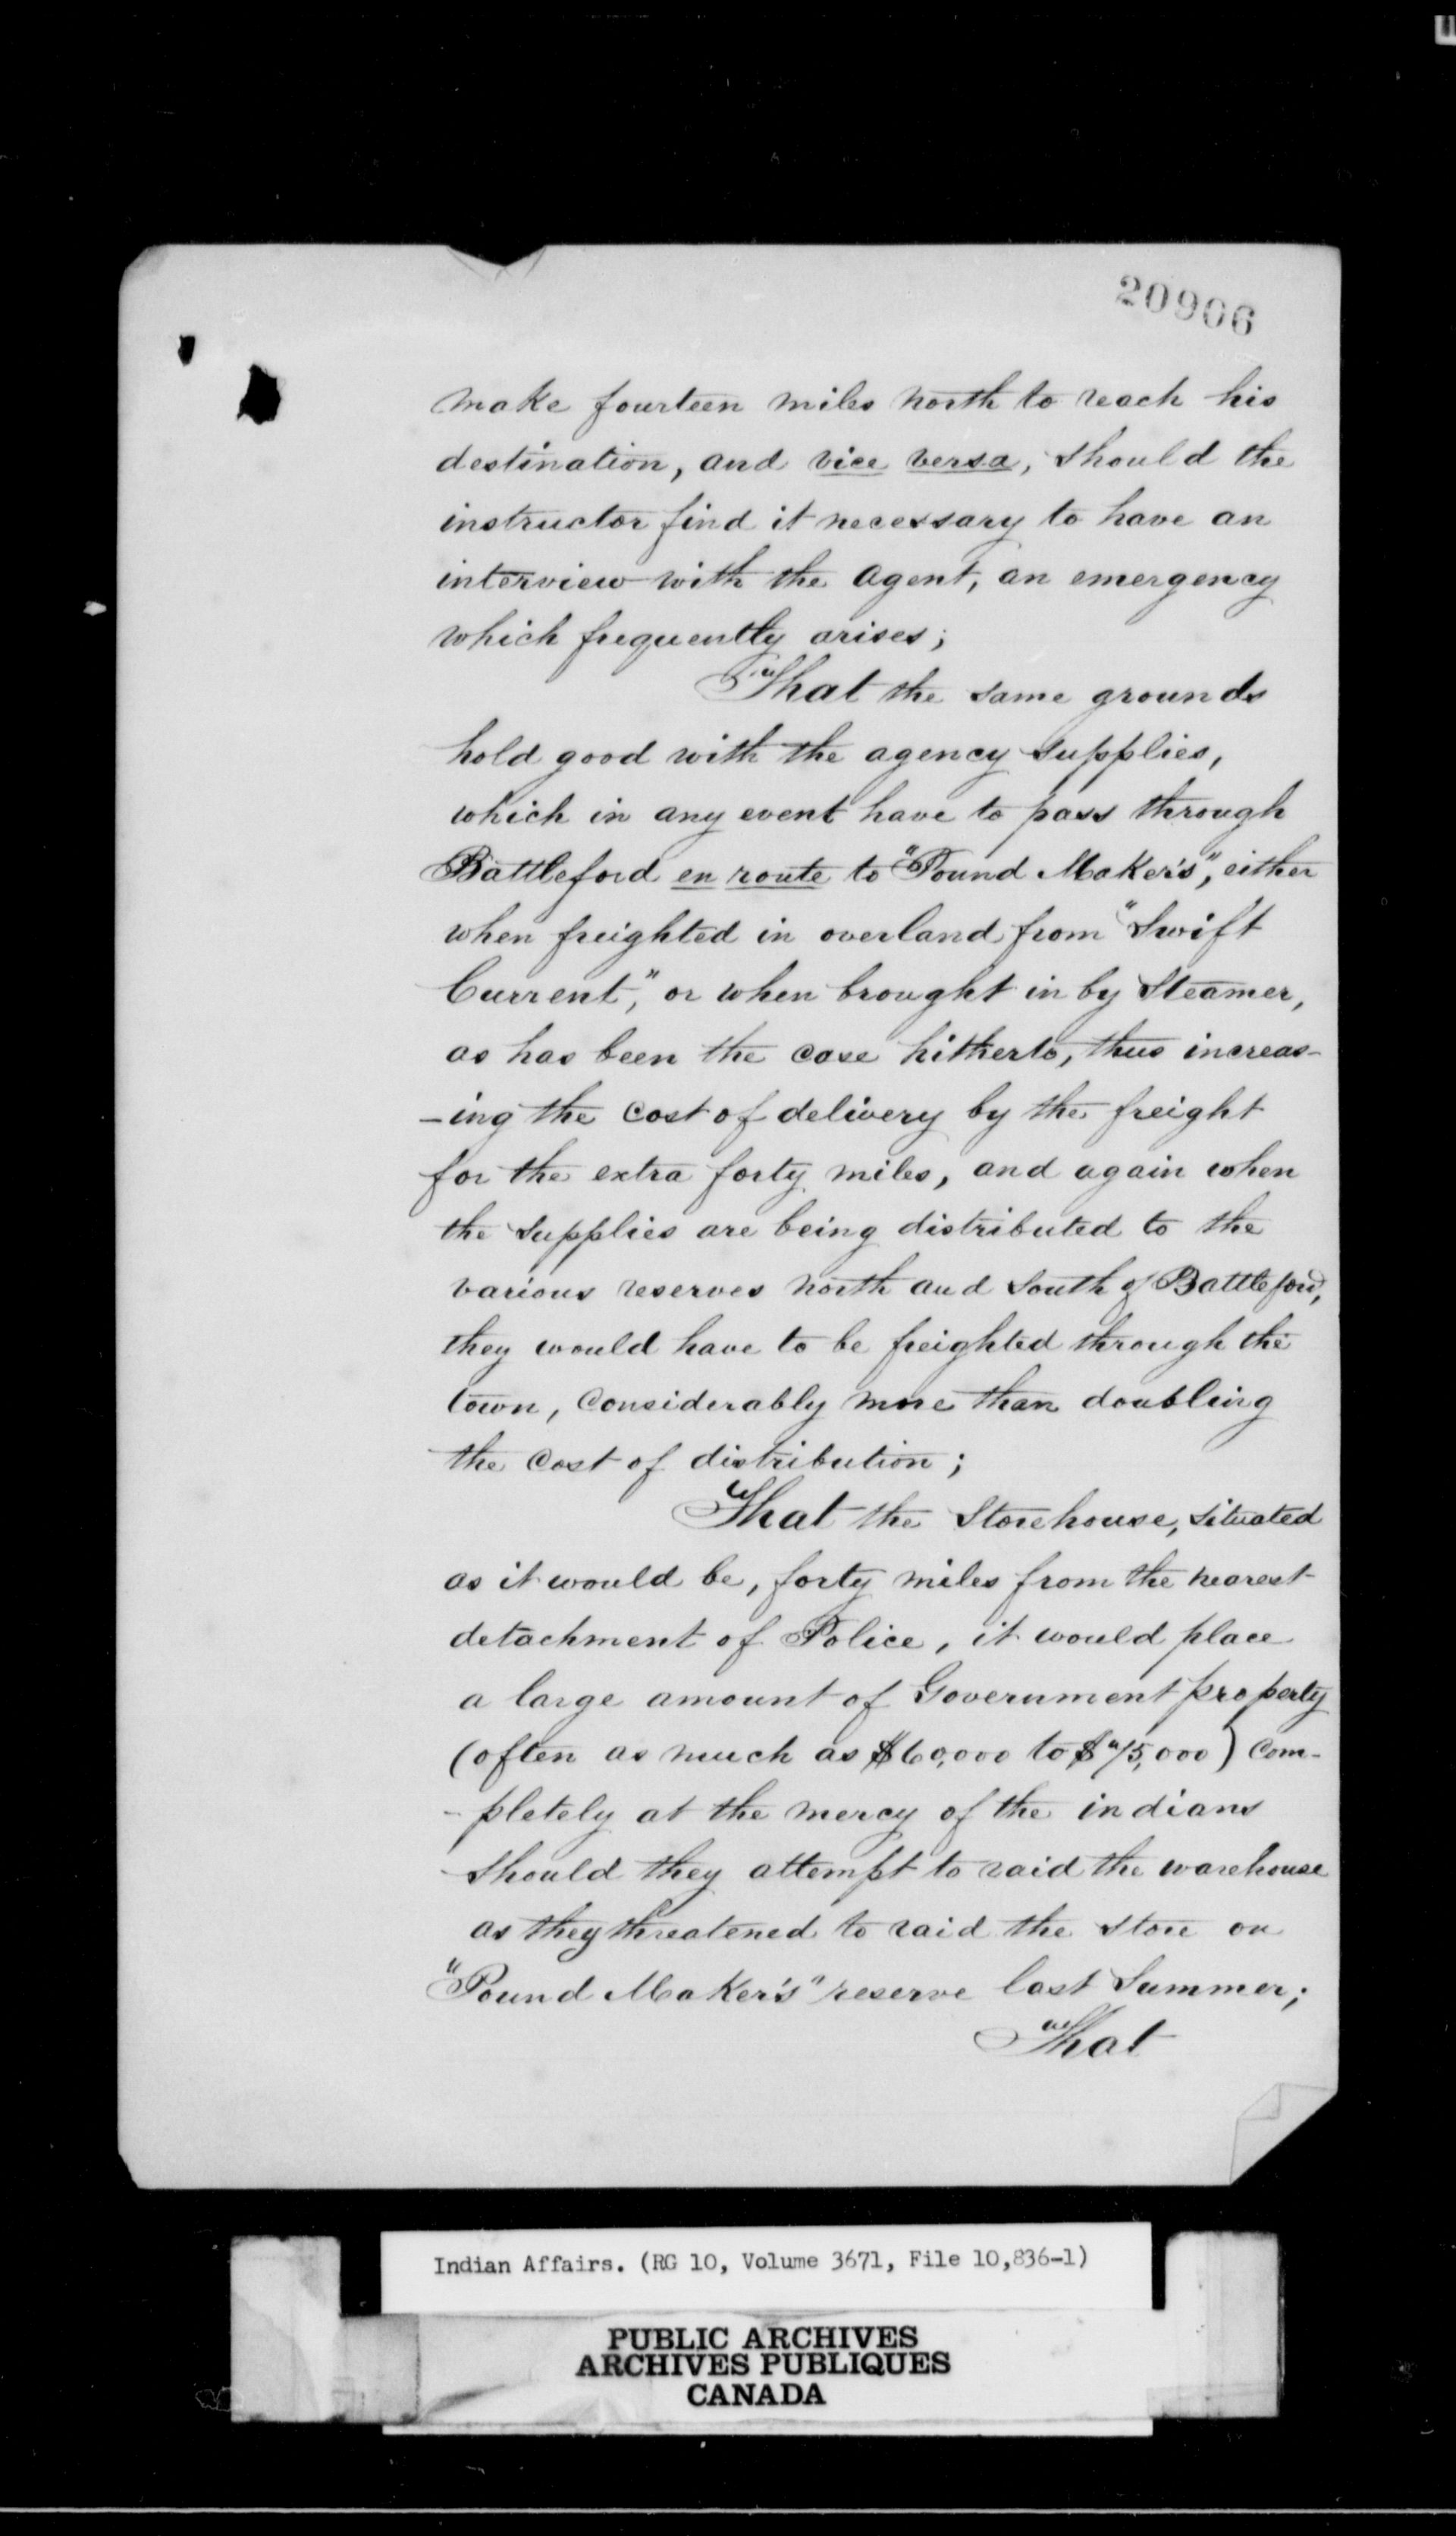 20906
make fourteen miles north to reach his
destination, and vice versa, should the
instructor find it necessary to have an
interview with the Agent, an emergency
which frequently arises;
That the same grounds
hold good with the agency supplies,
which in any event have to pass through
Battleford en route to "Pound Maker's", either
when freighted in overland from "Swift
Current," or when brought in by Steamer,
as has been the case hitherto, thus increas-
-ing the cost of delivery by the freight
for the extra forty miles, and again when
the supplies are being distributed to the
various reserves north and south of Battleford,
they would have to be freighted through the
town, considerably more than doubling
the cost of distribution;
That the Storehouse, situated
as it would be, forty miles from the nearest
detachment of Police, it would place
a large amount of Government property
(often as much as $60,000 to $75,000) com-
-pletely at the mercy of the indians
should they attempt to raid the warehouse
as they threatened to raid the store on
"Pound Maker's" reserve last Summer;
That
Indian Affairs. (RG 10, Volume 3671, File 10,836-1)
PUBLIC ARCHIVES
ARCHIVES PUBLIQUES
CANADA